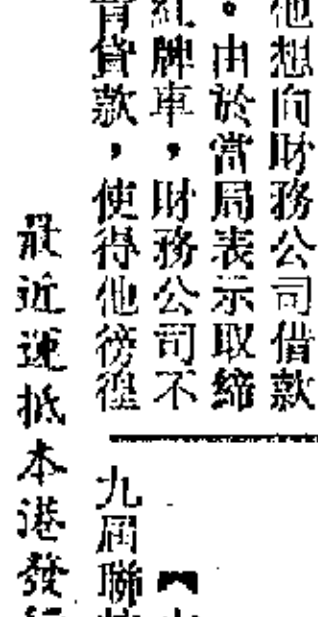 他想向財務公司借款
。由於當局表示取締
紅牌車，財務公司不
肯貸款，使得他徬徨
九屆聯
最近運抵本港發